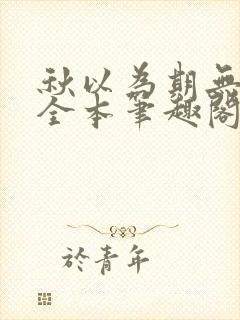 秋以為期無
全本筆趣閣
於青年